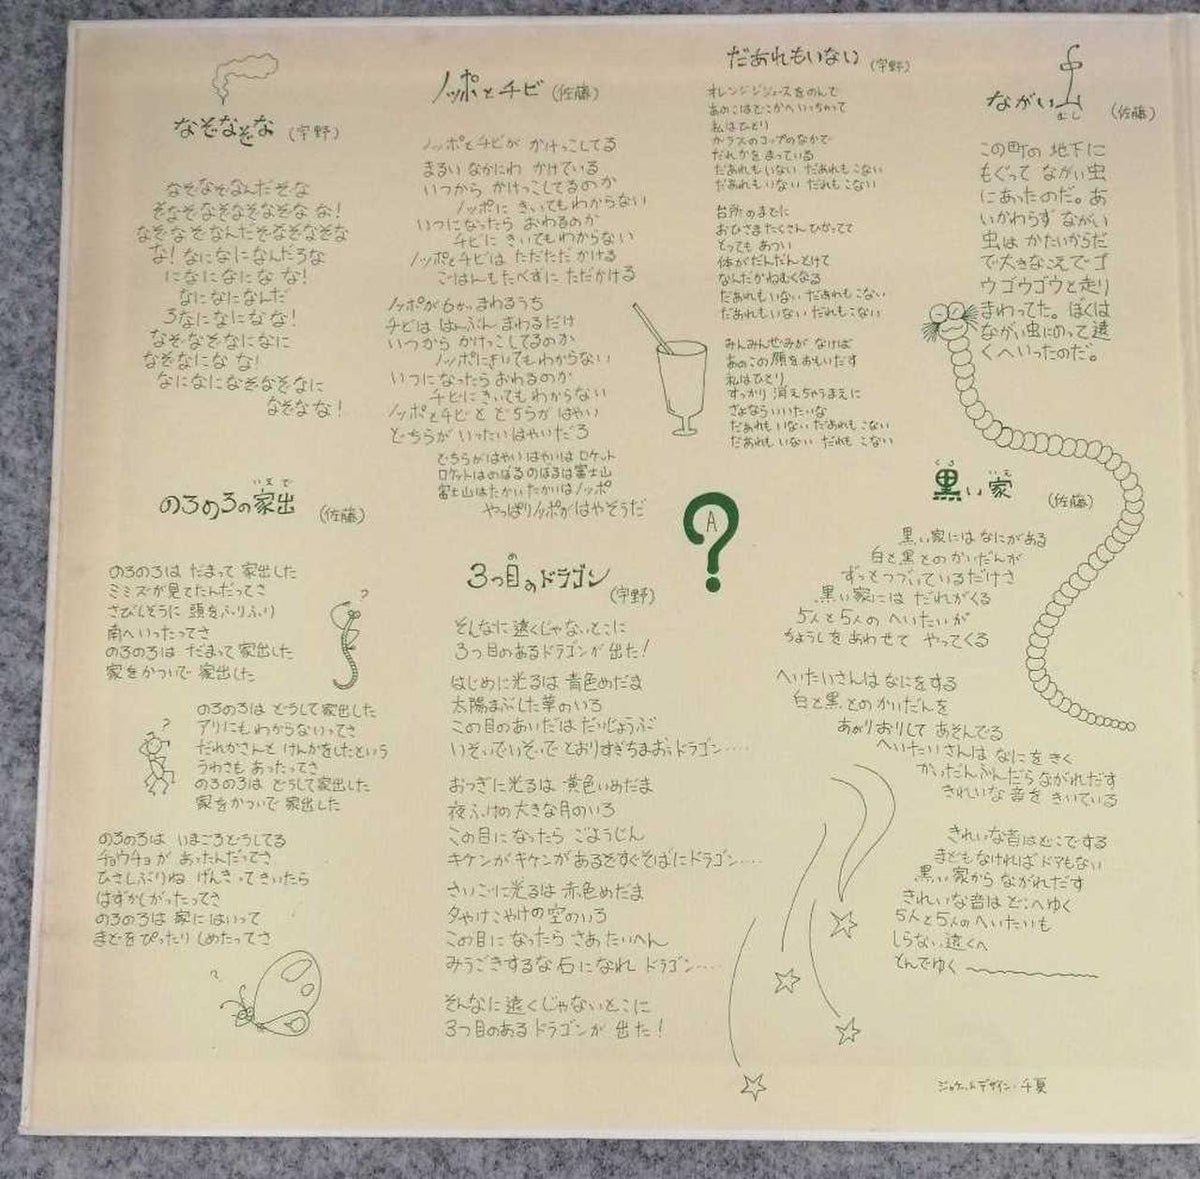 なぞなぞな (宇野)
なぞなぞなんだぞな
ぞなぞなぞなぞなぞな な!
なぞなぞなんだぞなぞなぞな
な! なになになんだろな
になになにな な!
なになになんだ
ろなになにな な!
なぞなぞなになに
なぞなにな な!
なになになぞなぞなに
なぞな な!
のろのろの家出 (佐藤)
いえで
のろのろは だまって 家出した
ミミズが見てたんだってさ
さびしそうに 頭をふりふり
南へいったってさ
のろのろは だまって 家出した
家をかついで 家出した
?
のろのろは どうして家出した
アリにも わからないってさ
だれかさんと けんかをしたという
うわさも あったってさ
のろのろは どうして家出した
家をかついで 家出した
?
のろのろは いまごろどうしてる
チョウチョが あったんだってさ
ひさしぶりね げんきってきいたら
はずかしがったってさ
のろのろは 家にはいって
まどをぴったり しめたってさ
?
ノッポとチビ (佐藤)
ノッポとチビが かけっこしてる
まるい なかにわ かけている
いつから かけっこしてるのか
ノッポに きいてもわからない
いつになったら おわるのか
チビに きいてもわからない
ノッポとチビは ただただ かける
ごはんもたべずに ただかける
ノッポが6かい まわるうち
チビは はんぶん まわるだけ
いつから かけっこしてるのか
ノッポにきいてもわからない
いつになったら おわるのか
チビにきいてもわからない
ノッポとチビと どちらが はやい
どちらが いったいはやいだろ
どちらがはやい はやいは ロケット
ロケットはのぼる のぼるは富士山
富士山はたかい たかいはノッポ
やっぱりノッポがはやそうだ
3つ目のドラゴン (宇野)
の
そんなに 遠くじゃないとこに
3つ目のあるドラゴンが 出た!
はじめに光るは 青色めだま
太陽まぶした 草のいろ
この目のあいだは だいじょうぶ
いそいでいそいで とおりすぎちまおう ドラゴン‥‥
おつぎに光るは 黄色いめだま
夜ふけの大きな月のいろ
この目になったら ごようじん
キケンがキケンが あるぞすぐそばに ドラゴン‥‥
さいごに光るは 赤色めだま
夕やけこやけの空のいろ
この目になったら さあ たいへん
みうごきするな 石になれ ドラゴン‥‥
そんなに 遠くじゃないとこに
3つ目のある ドラゴンが 出た!
だあれもいない (宇野)
オレンジジュースをのんで
あのこはどこかへいっちゃって
私はひとり
ガラスのコップのなかで
だれかをまっている
だあれもいない だあれもこない
だあれもいない だれもこない
台所のまどに
おひさまたくさん ひかってて
とっても あつい
体がだんだんとけて
なんだかねむくなる
だあれもいない だあれもこない
だあれもいない だれもこない
みんみんぜみが なけば
あのこの顔をおもいだす
私はひとり
すっかり 消えちゃうまえに
さよならいいたいな
だあれもいない だあれもこない
だあれもいない だれもこない
A
?
ながい虫 (佐藤)
むし
この町の 地下に
もぐって ながい虫
にあったのだ。あ
いかわらず ながい
虫は かたいからだ
で大きなこえでゴ
ウゴウゴウと走り
まわってた。ぼくは
ながい虫にのって遠
くへいったのだ。
黒い家 (佐藤)
くろ いえ
黒い家には なにがある
白と黒との かいだんが
ずっとつづいているだけさ
黒い家には だれがくる
5人と5人の へいたいが
ちょうしをあわせて やってくる
へいたいさんは なにをする
白と黒との かいだんを
あがりおりして あそんでる
へいたいさんは なにをきく
かいだんふんだら ながれだす
きれいな 音を きいている
きれいな音は どこでする
まどもなければ ドアもない
黒い家から ながれだす
きれいな音は どこへゆく
5人と5人のへいたいも
しらない 遠くへ
とんでゆく
ジャケットデザイン・千夏